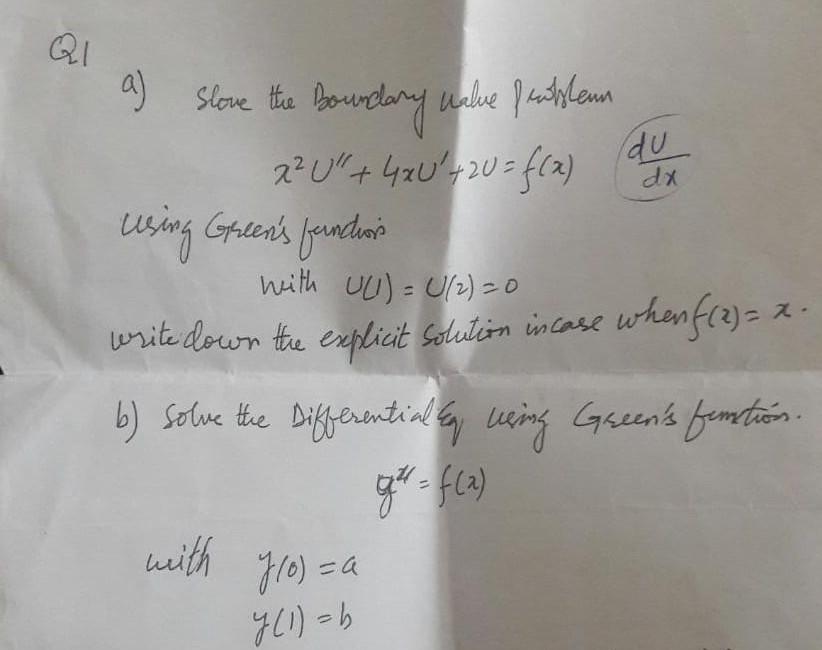 Q1
a) Slove the Boundary value Problem
x²U″ + 4xU′ + 2U = f(x) dU/dx
Using Green's function
with U(1) = U(2) = 0
write down the explicit solution in case when f(x) = x.
b) Solve the Differential Eq using Green's function.
y″ = f(x)
with y(0) = a
y(1) = b